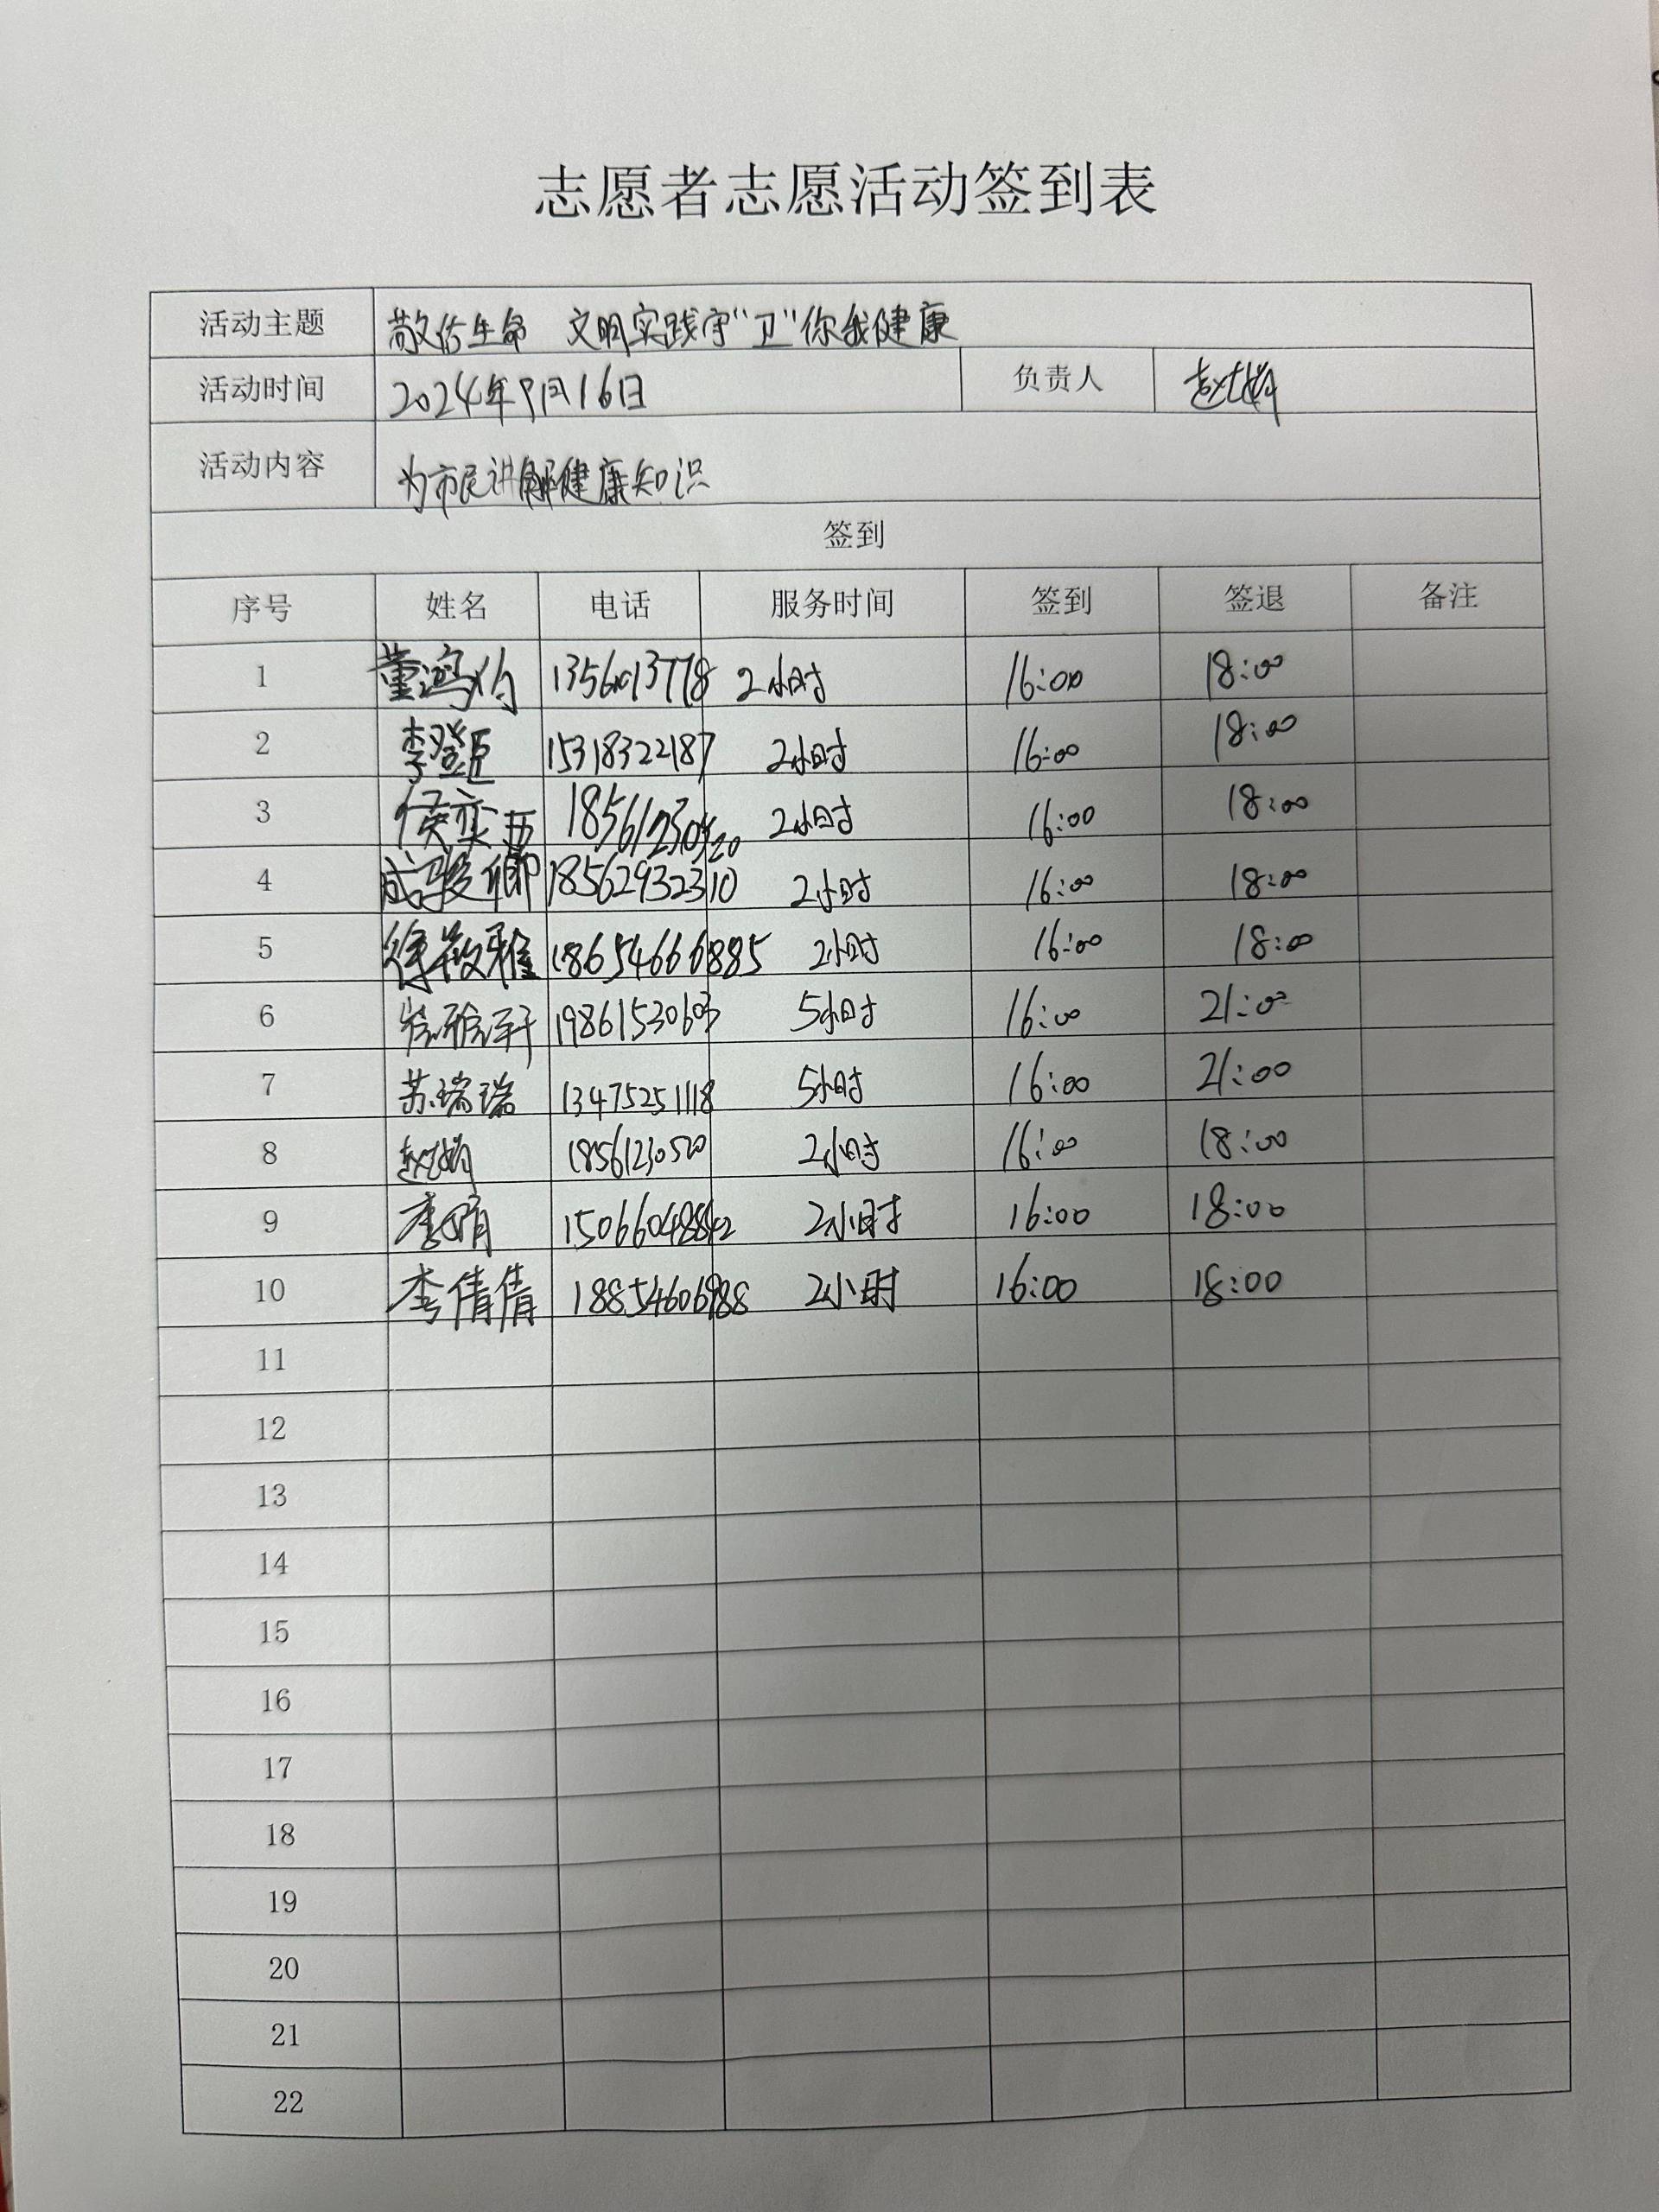 志愿者志愿活动签到表
活动主题 敬佑生命 文明实践守“卫”你我健康
活动时间 2024年9月16日 负责人
活动内容 为市民讲解健康知识
签到
序号 姓名 电话 服务时间 签到 签退 备注
1 2小时 16:00 18:00
2 15318322187 2小时 16:00 18:00
3 侯奕西 2小时 16:00 18:00
4 成骏卿 18562932310 2小时 16:00 18:00
5 徐薇雅 18654666885 2小时 16:00 18:00
6 5小时 16:00 21:00
7 苏瑞瑞 13475251118 5小时 16:00 21:00
8 18561230520 2小时 16:00 18:00
9 李娟 2小时 16:00 18:00
10 李倩倩 18854606988 2小时 16:00 18:00
11
12
13
14
15
16
17
18
19
20
21
22